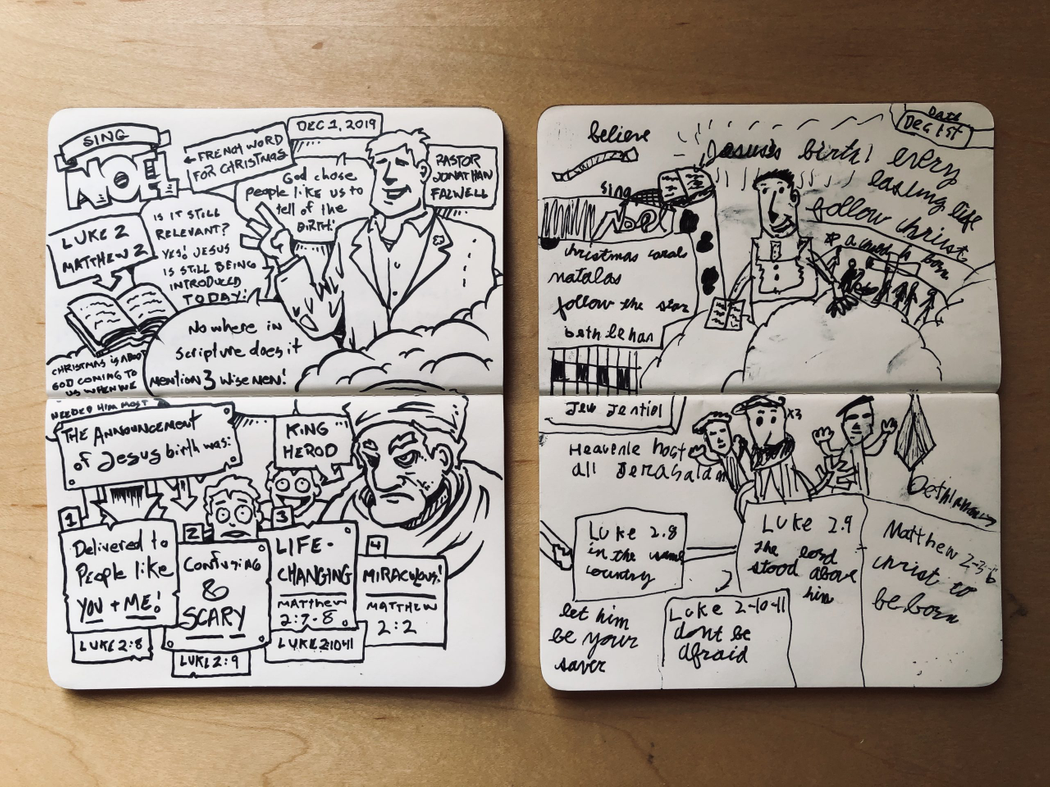 SING
NOEL
← FRENCH WORD
FOR CHRISTMAS
DEC 1, 2019
God chose
people like us to
tell of the
BIRTH!
PASTOR
JONATHAN
FALWELL
LUKE 2
MATTHEW 2
IS IT STILL
RELEVANT?
YES! JESUS
IS STILL BEING
INTRODUCED
TODAY!
No where in
scripture does it
mention 3 wise men!
CHRISTMAS is ABOUT
GOD COMING TO
US WHEN WE
NEEDED HIM MOST
THE ANNOUNCEMENT
of Jesus birth was:
KING
HEROD
1
Delivered to
People like
YOU + ME!
LUKE 2:8
2
Confusing
&
SCARY
LUKE 2:9
3
LIFE-
CHANGING
MATTHEW
2:7-8
LUKE 2:10-11
4
MIRACULOUS!
MATTHEW
2:2
believe
Date
Dec 1st
Jesuses birth! every
lasing life
follow christ
sing
Noel
christmas carol
natalas
follow the star
beth le han
is born
Jew Jentiel
x3
Heavenle host
all Jerasalam
Luke 2.8
in the same
country
Luke 2.9
the lord
stood above
him
Matthew 2-3-6
christ to
be born
let him
be your
saver
Luke 2-10-11
dont be
afraid